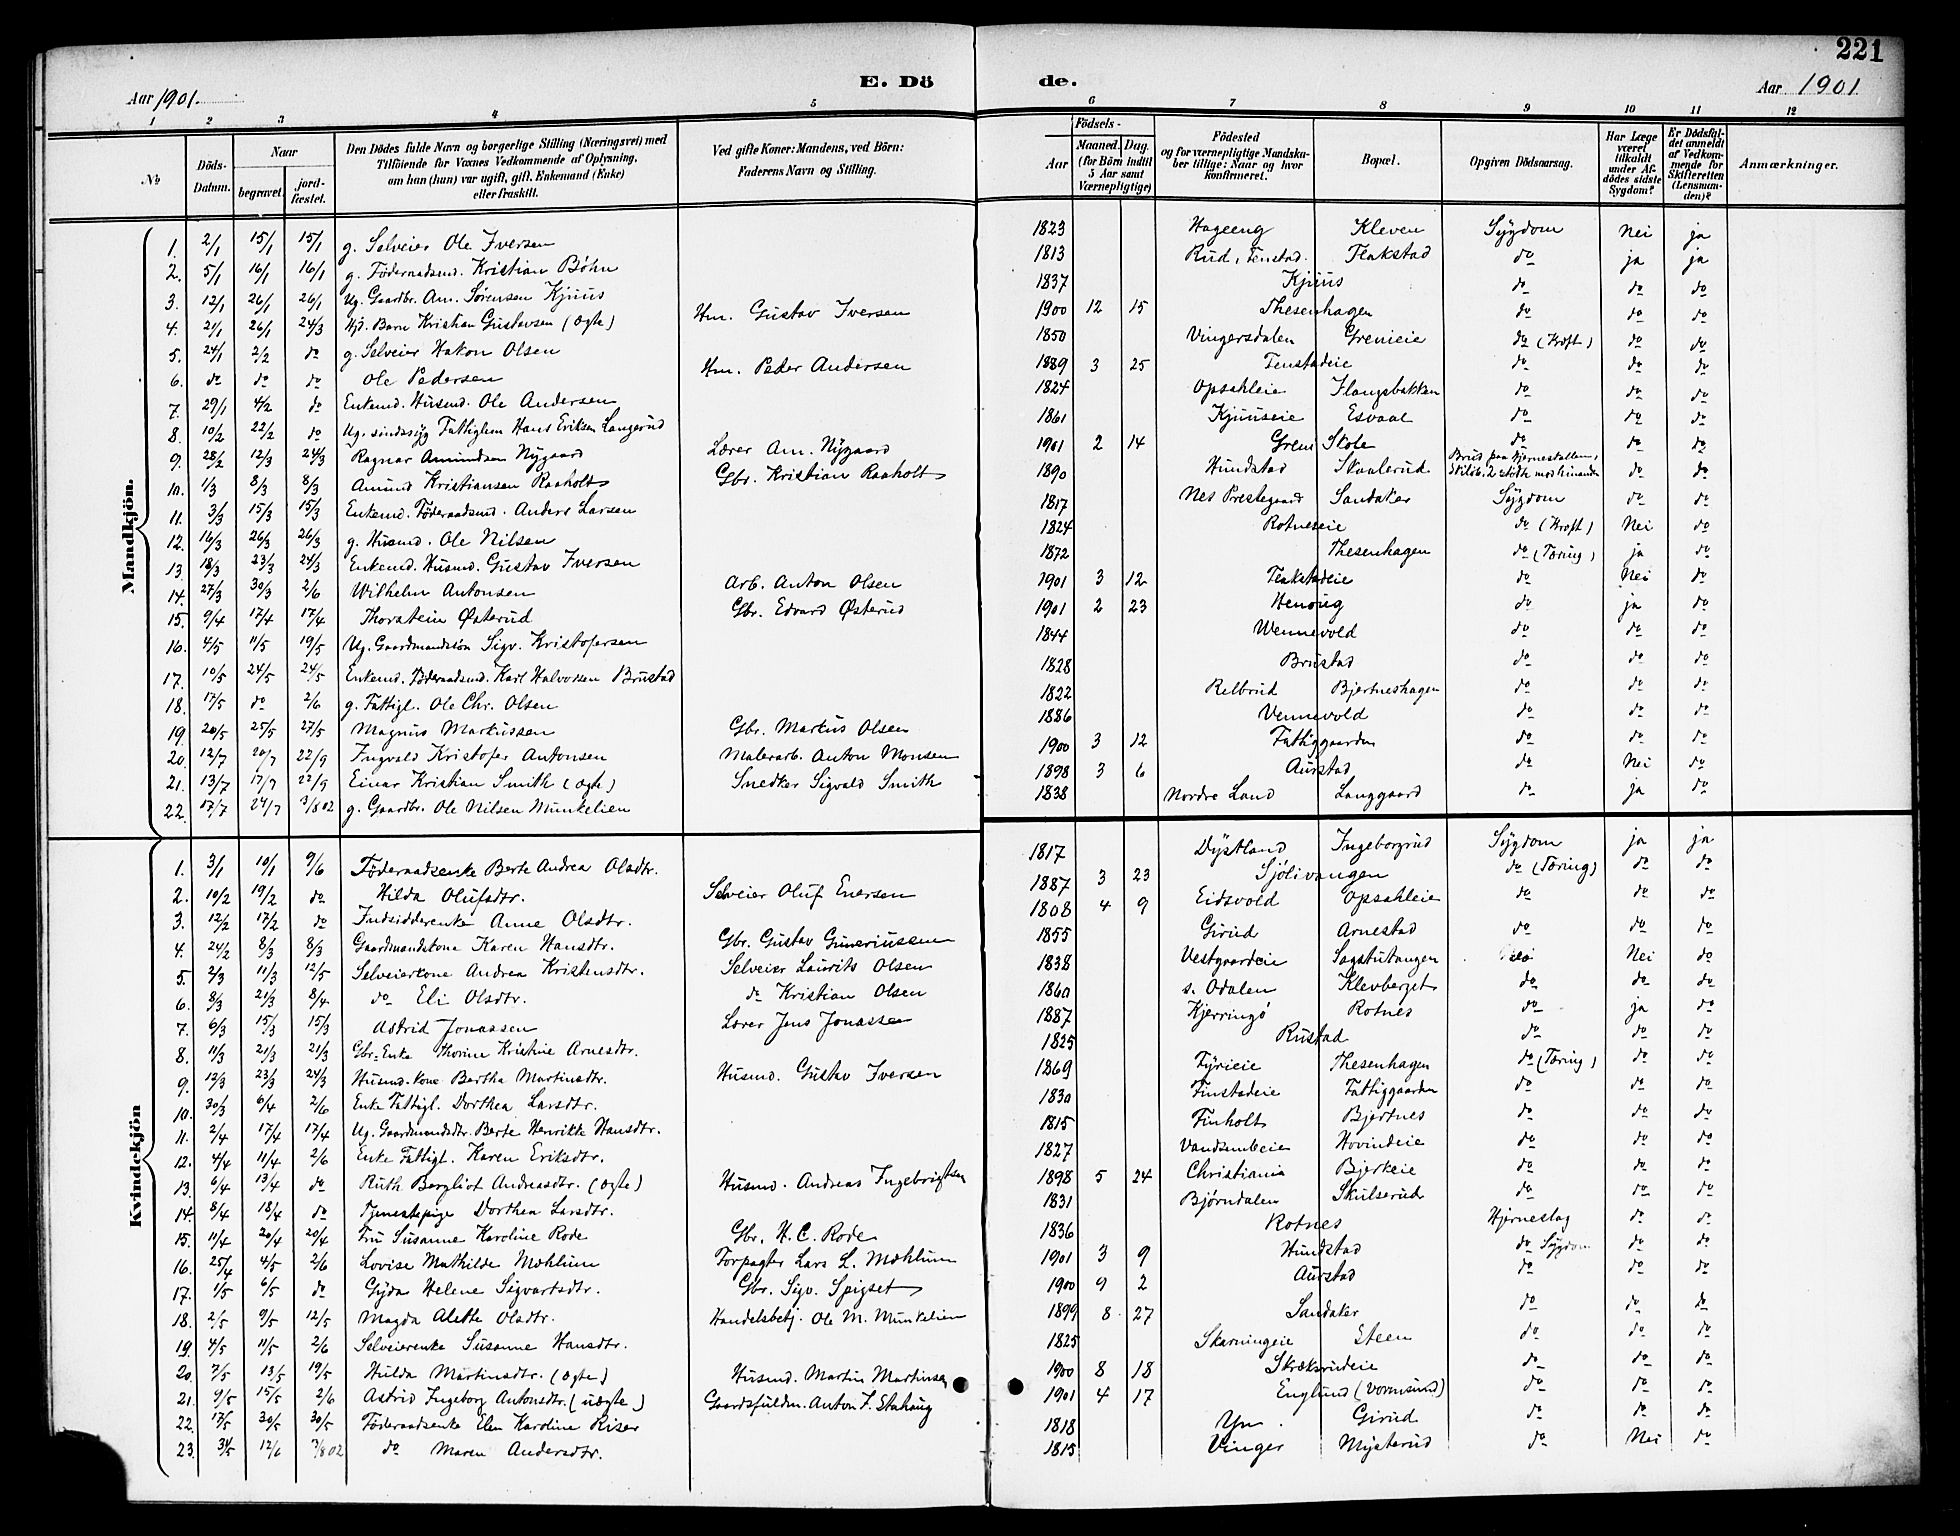 221
Aar 1901.
E. Dö
de.
Aar 1901
1 2 3 4 5
6 7 8 9 10 11 12
No
Döds-Datum.
Naar
begravet.
jord-fæstet.
Den Dödes fulde Navn og borgerlige Stilling (Næringsvei) med
Tilföiende for Voxnes Vedkommende af Oplysning,
om han (hun) var ugift, gift, Enkemand (Enke)
eller fraskilt.
Ved gifte Koner: Mandens, ved Börn:
Faderens Navn og Stilling.
Födsels-
Aar
Maaned. Dag.
(for Börn indtil
5 Aar samt
Værnepligtige)
Födested
og for værnepligtige Mandska-
ber tillige: Naar og hvor
konfirmeret.
Bopæl.
Opgiven Dödsaarsag.
Har Læge
været
tilkaldt
under Af-
dödes sidste
Sygdom?
Er Dödsfal-
det anmeldt
af Vedkom-
mende for
Skifteretten
(Lensman-
den)?
Anmærkninger.
Mandkjön.
1. 2/1 15/1 15/1 g. Selveier Ole Iversen 1823 Hageeng Kleven Sygdom Nei ja
2. 5/1 16/1 16/1 g. Föderaadsmd. Kristian Böhn 1813 Rud, Tenstad Fenkstad do ja ja
3. 12/1 26/1 26/1 Ug. Gaardbr. Am. Sørensen Kjuus 1837 Kjuus do do do
4. 21/1 26/1 24/3 Hjd. Barn Kristian Gustavsen (ægte) Hm. Gustav Iversen 1900 12 15 Thesenhagen do do do
5. 24/1 2/2 do g. Selveier Hakon Olsen 1850 Vingersdalen Grenieie do (Kræft) do do
6. do do do Ole Pedersen Hm. Peder Andersen 1889 3 25 Tenstadeie do do do
7. 29/1 4/2 do Enkemd. Husmd. Ole Andersen 1824 Opsahleie Haugsbakken do do do
8. 10/2 22/2 do Ug. sindssyg Fattiglem Hans Eriksen Langerud 1861 Kjuuseie Esvaal do do do
9. 28/2 12/3 24/3 Ragnar Amundsen Nygaard Lærer Am. Nygaard 1901 2 14 Greni Skole do do do
10. 1/3 8/3 8/3 Amund Kristiansen Raaholt Gbr. Kristian Raaholt 1890 Hundstad Skaalerud Brud paa Hjerneskallen, Skiløb. 2 stødte mod hinanden do do
11. 3/3 15/3 15/3 Enkemd. Föderaadsmd. Anders Larsen 1817 Nes Prestegaard Sandaker Sygdom do do
12. 16/3 26/3 26/3 g. Husmd. Ole Nilsen 1824 Rotneseie do (Kræft) Nei do
13 18/3 23/3 24/3 Enkemd. Husmd. Gustav Iversen 1872 Thesenhagen do (Tæring) ja do
14. 27/3 30/3 2/6 Wilhelm Antonsen Arb. Anton Olsen 1901 3 12 Fenkstadeie do Nei do
15. 9/4 17/4 17/4 Thorstein Østerud Gbr. Edvard Østerud 1901 2 23 Henoug do ja do
16. 4/5 11/5 19/5 Ug. Gaardmandssøn Sigv. Kristofersen 1844 Wennevold do do do
17. 10/5 24/5 24/5 Enkemd. Föderaadsmd. Karl Halvorsen Brustad 1828 Brustad do do do
18. 17/5 do 2/6 g. Fattigl. Ole Chr. Olsen 1822 Relbrud Bjertneshagen do do do
19 20/5 25/5 27/5 Magnus Markussen Gbr. Markus Olsen 1886 Vennevold do do do
20. 12/7 20/7 22/9 Ingvald Kristofer Antonsen Malerarb. Anton Monsen 1900 3 12 Fattiggaarden do do do
21. 13/7 17/7 22/9 Einar Kristian Smith (ægte) Snedker Sigvald Smith 1898 3 6 Aurstad do Nei do
22. 17/7 24/7 3/8 02 g. Gaardbr. Ole Nilsen Munkelien 1838 Nordre Land Langgaard do ja do
Kvindekjön
1. 3/1 10/1 9/6 Föderaadsenke Berte Andrea Olsdtr. 1817 Dystland Ingeborgrud Sygdom ja ja
2. 10/2 19/2 do Hilda Olufsdtr. Selveier Oluf Evensen 1887 3 23 Sjölivangen do (Tæring) do do
3. 12/2 17/2 do Indsidderenke Anne Olsdtr. 1808 4 9 Eidsvold Opsahleie do do do
4. 24/2 8/3 8/3 Gaardmandskone Karen Hansdtr. Gbr. Gustav Guneriussen 1855 Girud Arnestad do do do
5. 2/3 11/3 12/5 Selveierkone Andrea Kristensdtr. Selveier Laurits Olsen 1838 Vestgaardeie Sagstutangen Nei do
6. 8/3 21/3 8/4 do Eli Olsdtr. do Kristian Olsen 1860 s. Odalen Klevberget do do do
7. 6/3 15/3 15/3 Astrid Jonassen Lærer Jens Jonassen 1887 Kjerringö Rotnes do ja do
8. 11/3 21/3 21/3 Gbr. Enke Thorine Kristine Arnesdtr. 1825 Rustad do do do
9. 12/3 23/3 24/3 Husmd. kone Bertha Martinsdtr. Husmd. Gustav Iversen 1869 Fyrieie Thesenhagen do (Tæring) do do
10. 30/3 6/4 2/6 Enke Fattigl. Dorthea Larsdtr. 1830 Finstadeie Fattiggaarden do do do
11. 2/4 17/4 17/4 Ug. Gaardmandsdtr. Berte Henrikke Hansdtr. 1815 Finholt Bjertnes do do do
12. 4/4 11/4 2/6 Enke Fattigl. Karen Eriksdtr. 1827 Vandsumbeie Hovindeie do do do
13. 6/4 13/4 do Ruth Bergliot Andreasdtr. (ægte) Husmd. Andreas Ingebrigtsen 1898 5 24 Christiania Bjerkeie do do do
14. 8/4 18/4 do Tjenestepige Dorthea Larsdtr. 1831 Bjørndalen Skulserud do do do
15. 11/4 20/4 20/4 Fru Susanne Karoline Rode Gbr. H. C. Rode 1836 Rotnes Hjerneslag do do
16. 25/4 4/5 2/6 Lovise Mathilde Mæhlum Forpagter Lars L. Mæhlum 1901 3 9 Hundstad do Sygdom do do
17. 1/5 6/5 do Gyda Helene Sigvartsdtr. Gbr. Sigv. Spigset 1900 9 2 Aurstad do do do
18. 2/5 9/5 12/5 Magda Alette Olsdtr. Handelsbetj. Ole M. Munkelien 1899 8 27 Sandaker do do do
19. 4/5 11/5 2/6 Selveierenke Susanne Hansdtr. 1825 Skarningeie Steen do do do
20. 7/5 13/5 19/5 Hulda Martinsdtr. (ægte) Husmd. Martin Martinsen 1900 8 18 Skreksrudeie do do do
21. 9/5 15/5 2/6 Astrid Ingeborg Antonsdtr. (uægte) Gaardsfuldm. Anton F. Stahaug 1901 4 17 Englund (Vormsund) do do do
22. 17/5 30/5 30/5 Föderaadsenke Elen Karoline Riser 1818 Yn Girud do do do
23. 31/5 12/6 3/8 02 do Maren Andersdtr. 1815 Vinger Mysterud do Nei do